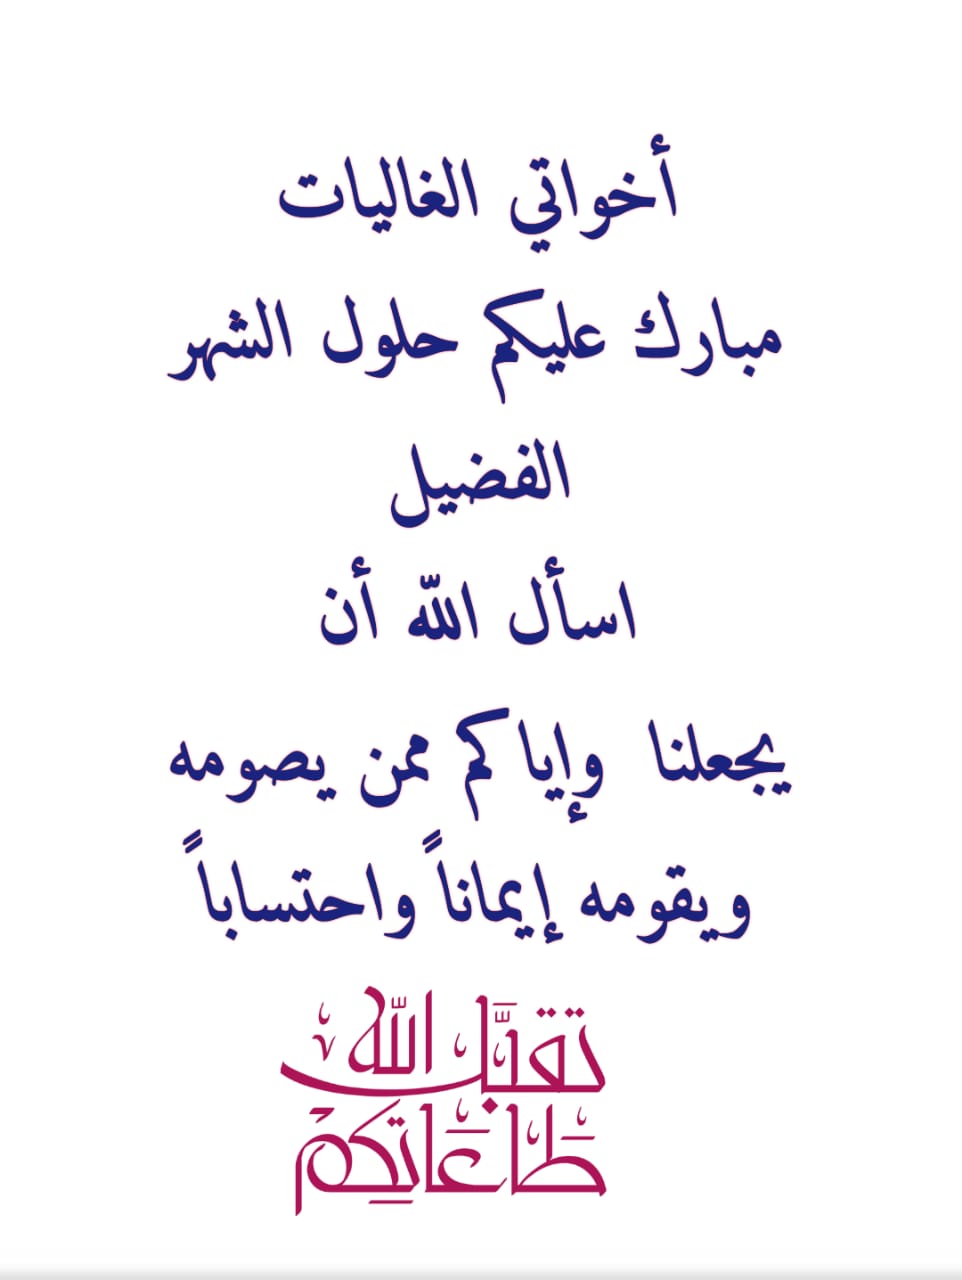 أخواتي الغاليات
مبارك عليكم حلول الشهر
الفضيل
اسأل الله أن
يجعلنا وإياكم ممن يصومه
ويقومه إيماناً واحتساباً
تقبَّل الله
طاعاتِكم